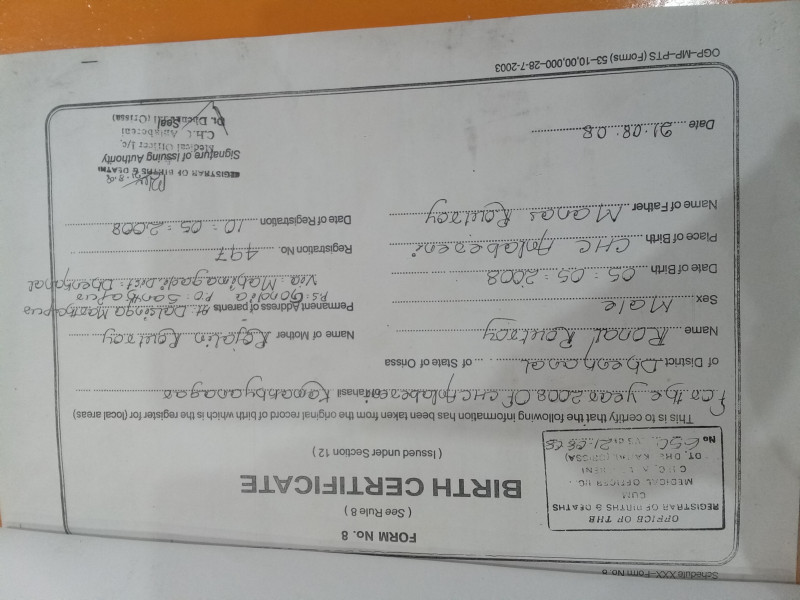 Schedule XXX–Form No. 8
FORM No. 8
( See Rule 8 )
BIRTH CERTIFICATE
( Issued under Section 12 )
OFFICE OF THE
REGISTRAR OF BIRTHS & DEATHS
CUM
MEDICAL OFFICER I/C.
C.H.C.
No
This is to certify that the following information has been taken from the original record of birth which is the register for (local areas)
For the year 2008 OF CHC Anlabereni tahasil Kamakhyanagar
of District Dhenkanal of State of Orissa
Name Ronal Routray
Name of Mother Rojalin Routray
Sex Male
Permanent Address of parents At: Dalsinga
Ps: Gondia Po: Santhapur
Via: Mahimagadi Dist: Dhenkanal
Date of Birth 05 : 05 : 2008
Registration No. 497
Place of Birth CHC Anlabereni
Date of Registration 10 : 05 : 2008
Name of Father Manas Routray
REGISTRAR OF BIRTHS & DEATHS
Signature of Issuing Authority
Medical Officer I/c.
C.h.C. Anlabereni
Seal
Date 21.08.08
OGP–MP–PTS (Forms) 53–10,00,000–28-7-2003